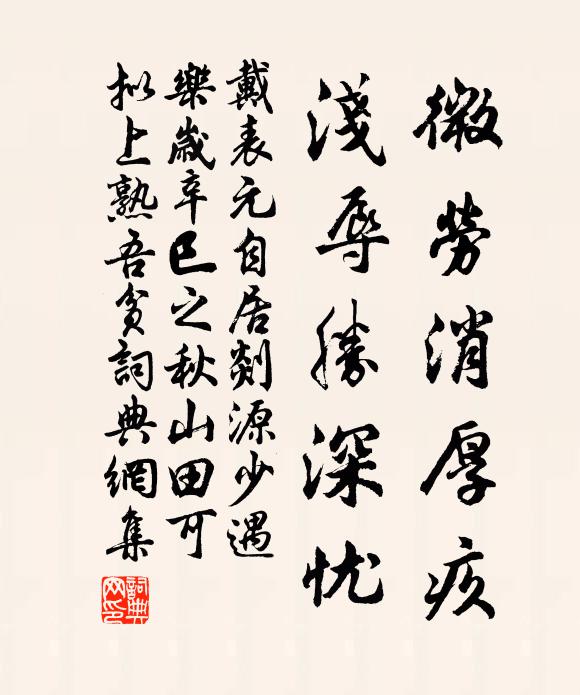 微勞消厚疾
淺辱勝深忧
戴表元自居剡源少遇
樂歲辛巳之秋山田可
拟上熟吾貧詞典網集
詞典网印